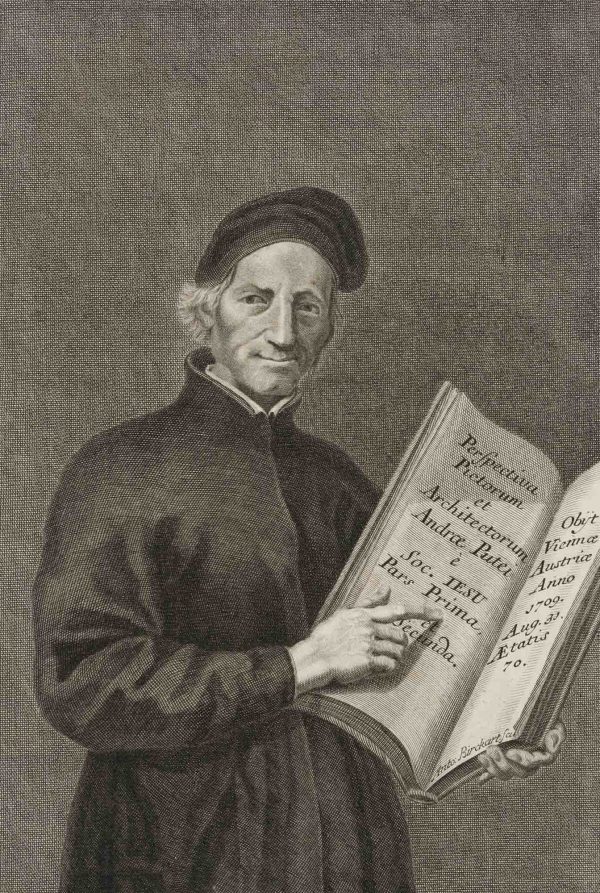 Perspectiva
Pictorum
et
Architectorum
Andræ Putei
è
Soc. IESU
Pars Prima,
et
Secunda.
Obijt
Viennæ
Austriæ
Anno
1709.
Aug. 31.
Ætatis
70.
Anto. Birckart sc.